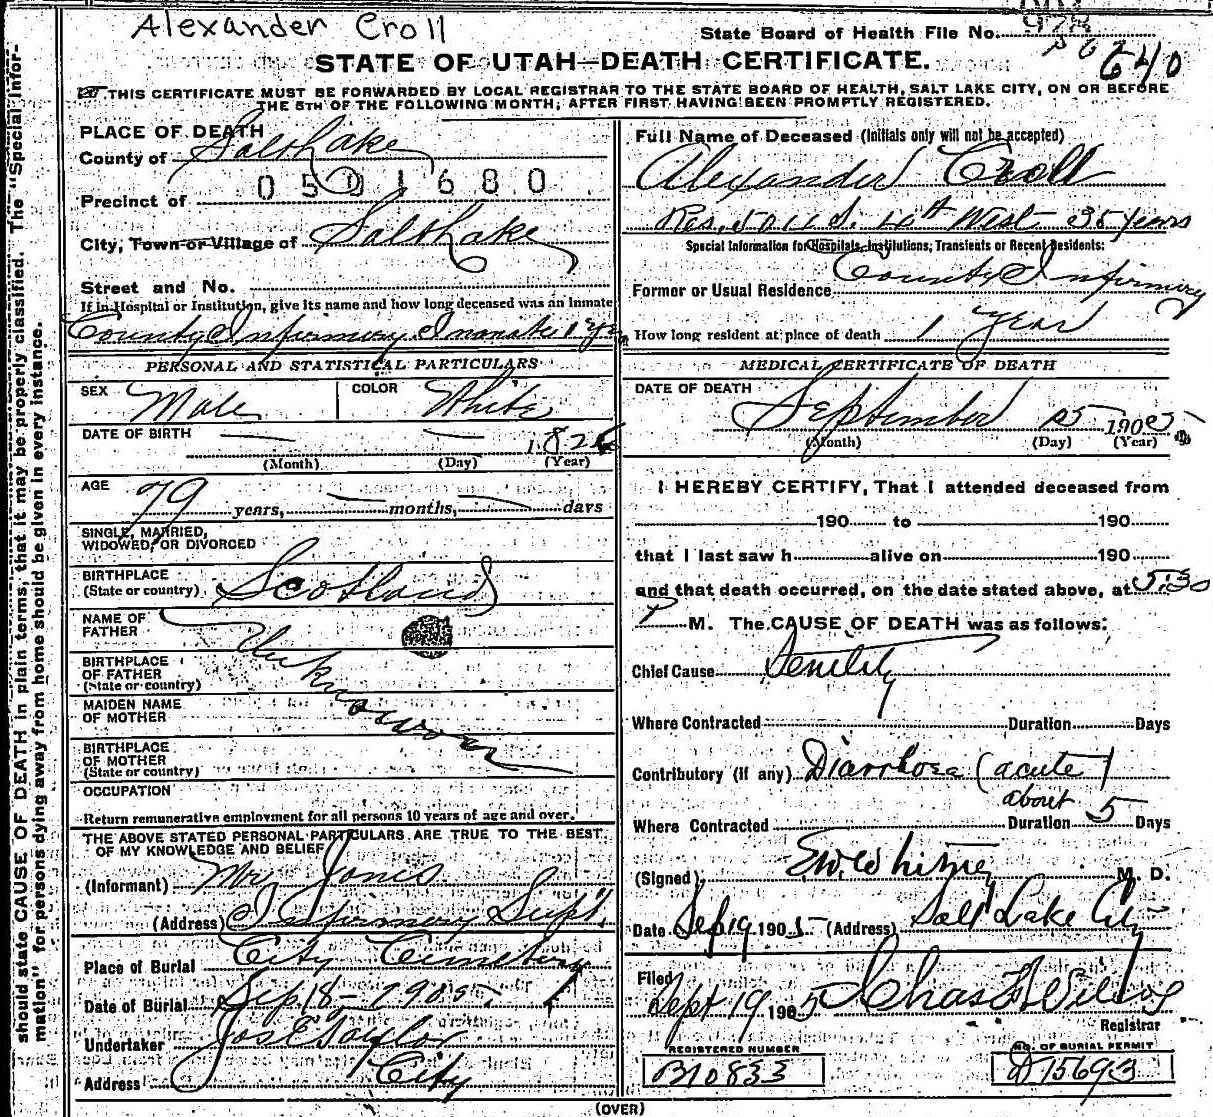 Alexander Croll
State Board of Health File No. 978
640
STATE OF UTAH—DEATH CERTIFICATE.
THIS CERTIFICATE MUST BE FORWARDED BY LOCAL REGISTRAR TO THE STATE BOARD OF HEALTH, SALT LAKE CITY, ON OR BEFORE
THE 5TH OF THE FOLLOWING MONTH, AFTER FIRST HAVING BEEN PROMPTLY REGISTERED.
should state CAUSE OF DEATH in plain terms, that it may be properly classified. The "Special Infor-
mation" for persons dying away from home should be given in every instance.
PLACE OF DEATH
County of Salt Lake
0501680
Precinct of
City, Town or Village of Salt Lake
Street and No.
If in Hospital or Institution, give its name and how long deceased was an Inmate
County Infirmary Inmate 1 yr
PERSONAL AND STATISTICAL PARTICULARS
SEX Male COLOR White
DATE OF BIRTH — — 1826
(Month) (Day) (Year)
AGE 79 years, — months, — days
SINGLE, MARRIED,
WIDOWED, OR DIVORCED
BIRTHPLACE
(State or country) Scotland
NAME OF
FATHER
Unknown
BIRTHPLACE
OF FATHER
(State or country)
MAIDEN NAME
OF MOTHER
BIRTHPLACE
OF MOTHER
(State or country)
OCCUPATION
Return remunerative employment for all persons 10 years of age and over.
THE ABOVE STATED PERSONAL PARTICULARS ARE TRUE TO THE BEST
OF MY KNOWLEDGE AND BELIEF
(Informant) Mr Jones
(Address) Infirmary Supt.
Place of Burial City Cemetery
Date of Burial Sep 18 — 1905
Undertaker Jos E Taylor
Address City
Full Name of Deceased (Initials only will not be accepted)
Alexander Croll
Res. S. 4th West 35 years
Special Information for Hospitals, Institutions, Transients or Recent Residents:
Former or Usual Residence County Infirmary
How long resident at place of death 1 year
MEDICAL CERTIFICATE OF DEATH
DATE OF DEATH
September 15 1905
(Month) (Day) (Year)
I HEREBY CERTIFY, That I attended deceased from
190 to 190
that I last saw h alive on 190
and that death occurred, on the date stated above, at 5:30
P M. The CAUSE OF DEATH was as follows:
Chief Cause Senility
Where Contracted Duration Days
Contributory (if any) Diarrhoea (acute)
about
Where Contracted Duration 5 Days
(Signed) M. D.
Date Sep 19 1905 (Address) Salt Lake City
Filed
Sept 19 1905 Chas F Wilcox
Registrar
REGISTERED NUMBER
B10833
NO. OF BURIAL PERMIT
D15693
(OVER)